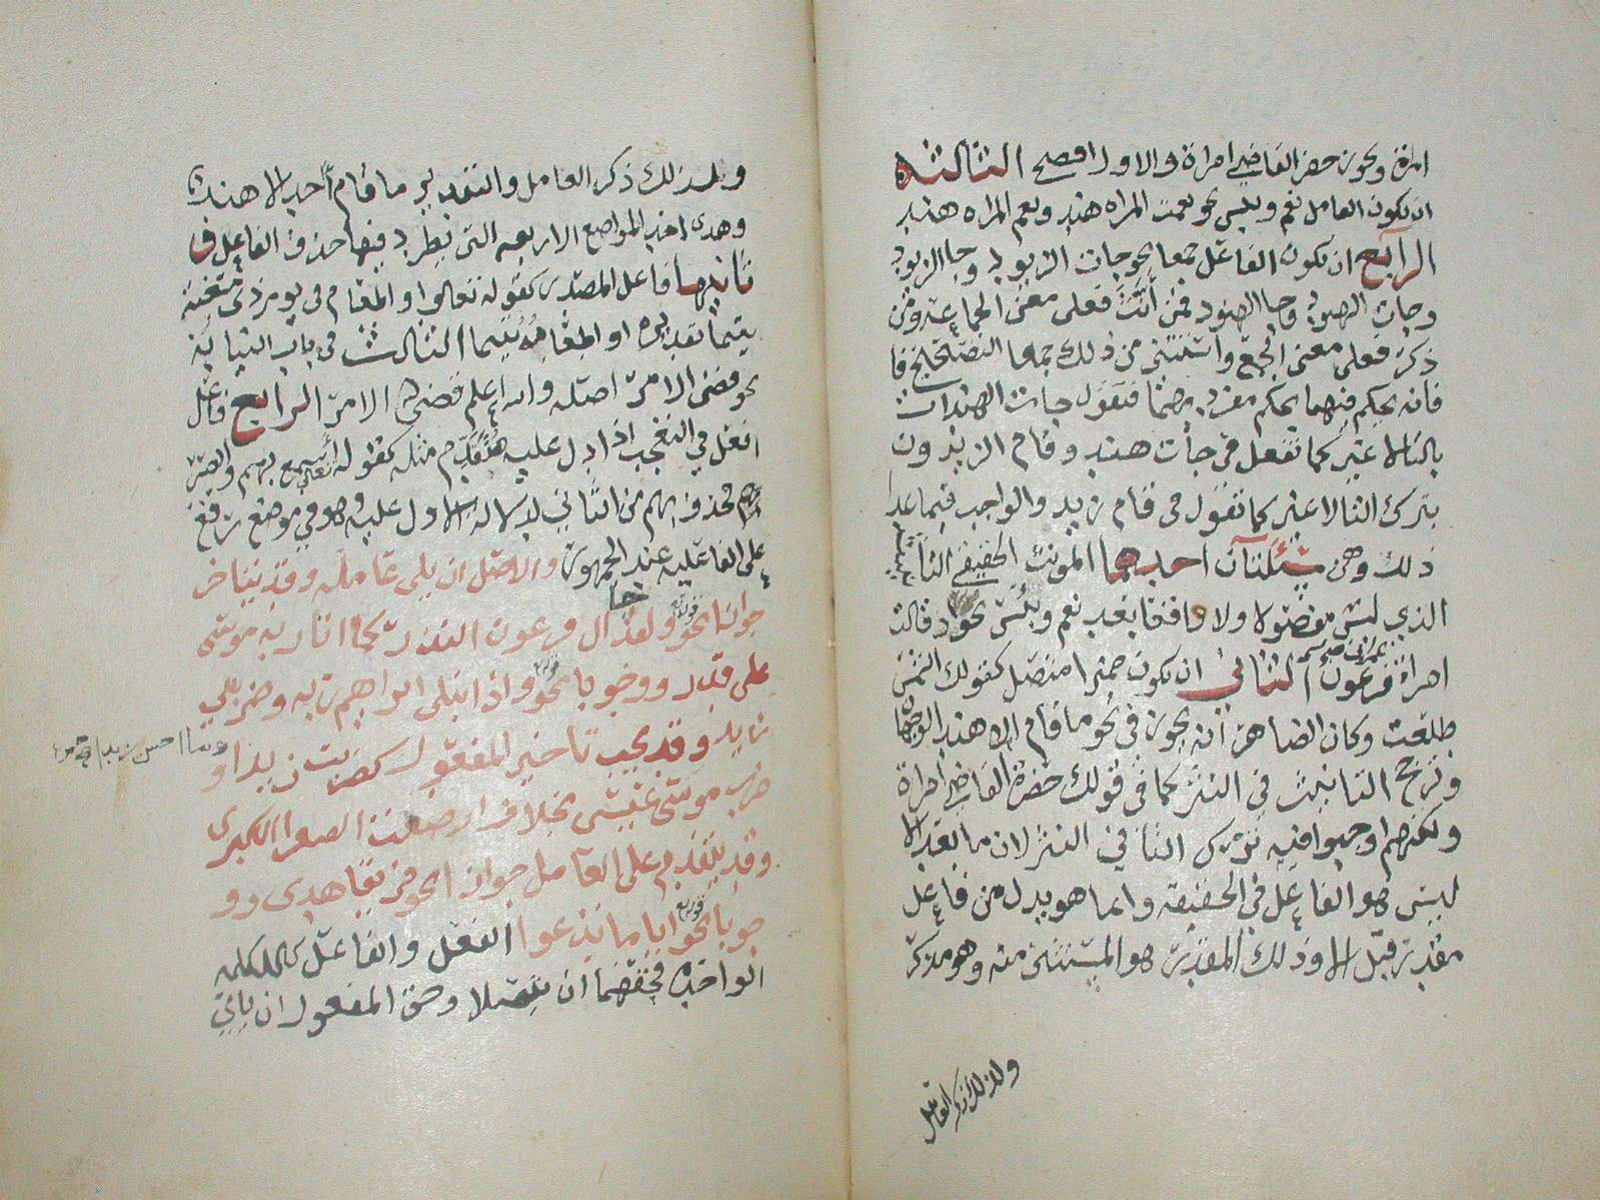 امراة ويجوز حضر القاضي امراة والاول افصح الثالثه
ان يكون العامل نعم وبيس نحو نعمت المراه هند ونعم المراه هند
الرابع ان يكون الفاعل جمعا نحو جات الزيود وجا الزيود
وجات الهنود وجا الهنود فمن أنَّثَ فعلى معنى الجماعه ومن
ذكر فعلى معنى الجمع واستثني من ذلك جمعا التصحيح فا
فانه يحكم فيهما بحكم مفرديهما فتقول جات الهندات
بالتا لا غير كما تفعل في جات هند وقام الزيدون
بترك التا لا غير كما تفول في قام زيد والواجب فيما عدا
ذلك وهي مسئلتان احدهما المونث الحقيقي التانيث
الذي ليس مفصولا ولا واقعا بعد نعم وبئس نحو اذ قالت
امراة فرعون الثاني ان يكون ضميرا متصل كقولك الشمس
طلعت وكان الظاهر ان يجوز في نحو ما قام الا هند الوجهان
وترجح التانيث في النثر كما في قولك حضرة القاضي امراة
ولكنهم اوجبوا فيه ترك التا في النثر لان ما بعد الا
ليس هو الفاعل في الحقيقه وانما هو بدل من فاعل
مقدر قبل الا وذلك المقدر هو المستثنى منه وهو مذكر
ولذلك ذكر العامل
ولذلك ذكر العامل والتقدير ما قام احد الا هند
وهدى احد المواضع الاربعه التي يطرد فيها حذف الفاعل في
ثانيها فاعل المصدر كقوله تعالوا او اطعام في يوم ذي مسغبة
يتيما تقديره او اطعامهُ يتيما الثالث في باب النيابة
نحو قضى الامر اصله والله اعلم قضى الله الامر الرابع فاعل
افعل في التعجب اذا دل عليه مُتقدِّم مثله كقوله اسمع بهم وابصر
بهم فحذف بهم من الثاني لدلالة الاول عليه وهو في موضع رفع
على الفاعليه عند الجمهور والاصل ان يلي عامله وقد يتاخر
جوازا نحو ولقد جا ال فرعون النذر كما اتا ربه موسى
على قدر ووجوبا نحو واذ ابتلى ابراهيم ربه وضربني
زيد وقد يجب تاخير المفعول كضربت زيدا و
وما احسن زيدا
ضرب موسى عيسى بخلاف ارضعت الصغرا الكبرى
وقد يتقدم على العامل جوازا نحو فريقا هدى وو
جوبا نحو ايا ما تدعوا الفعل والفاعل كالكلمه
الواحده فحقهما ان يتصلا وحق المفعول ان ياتي